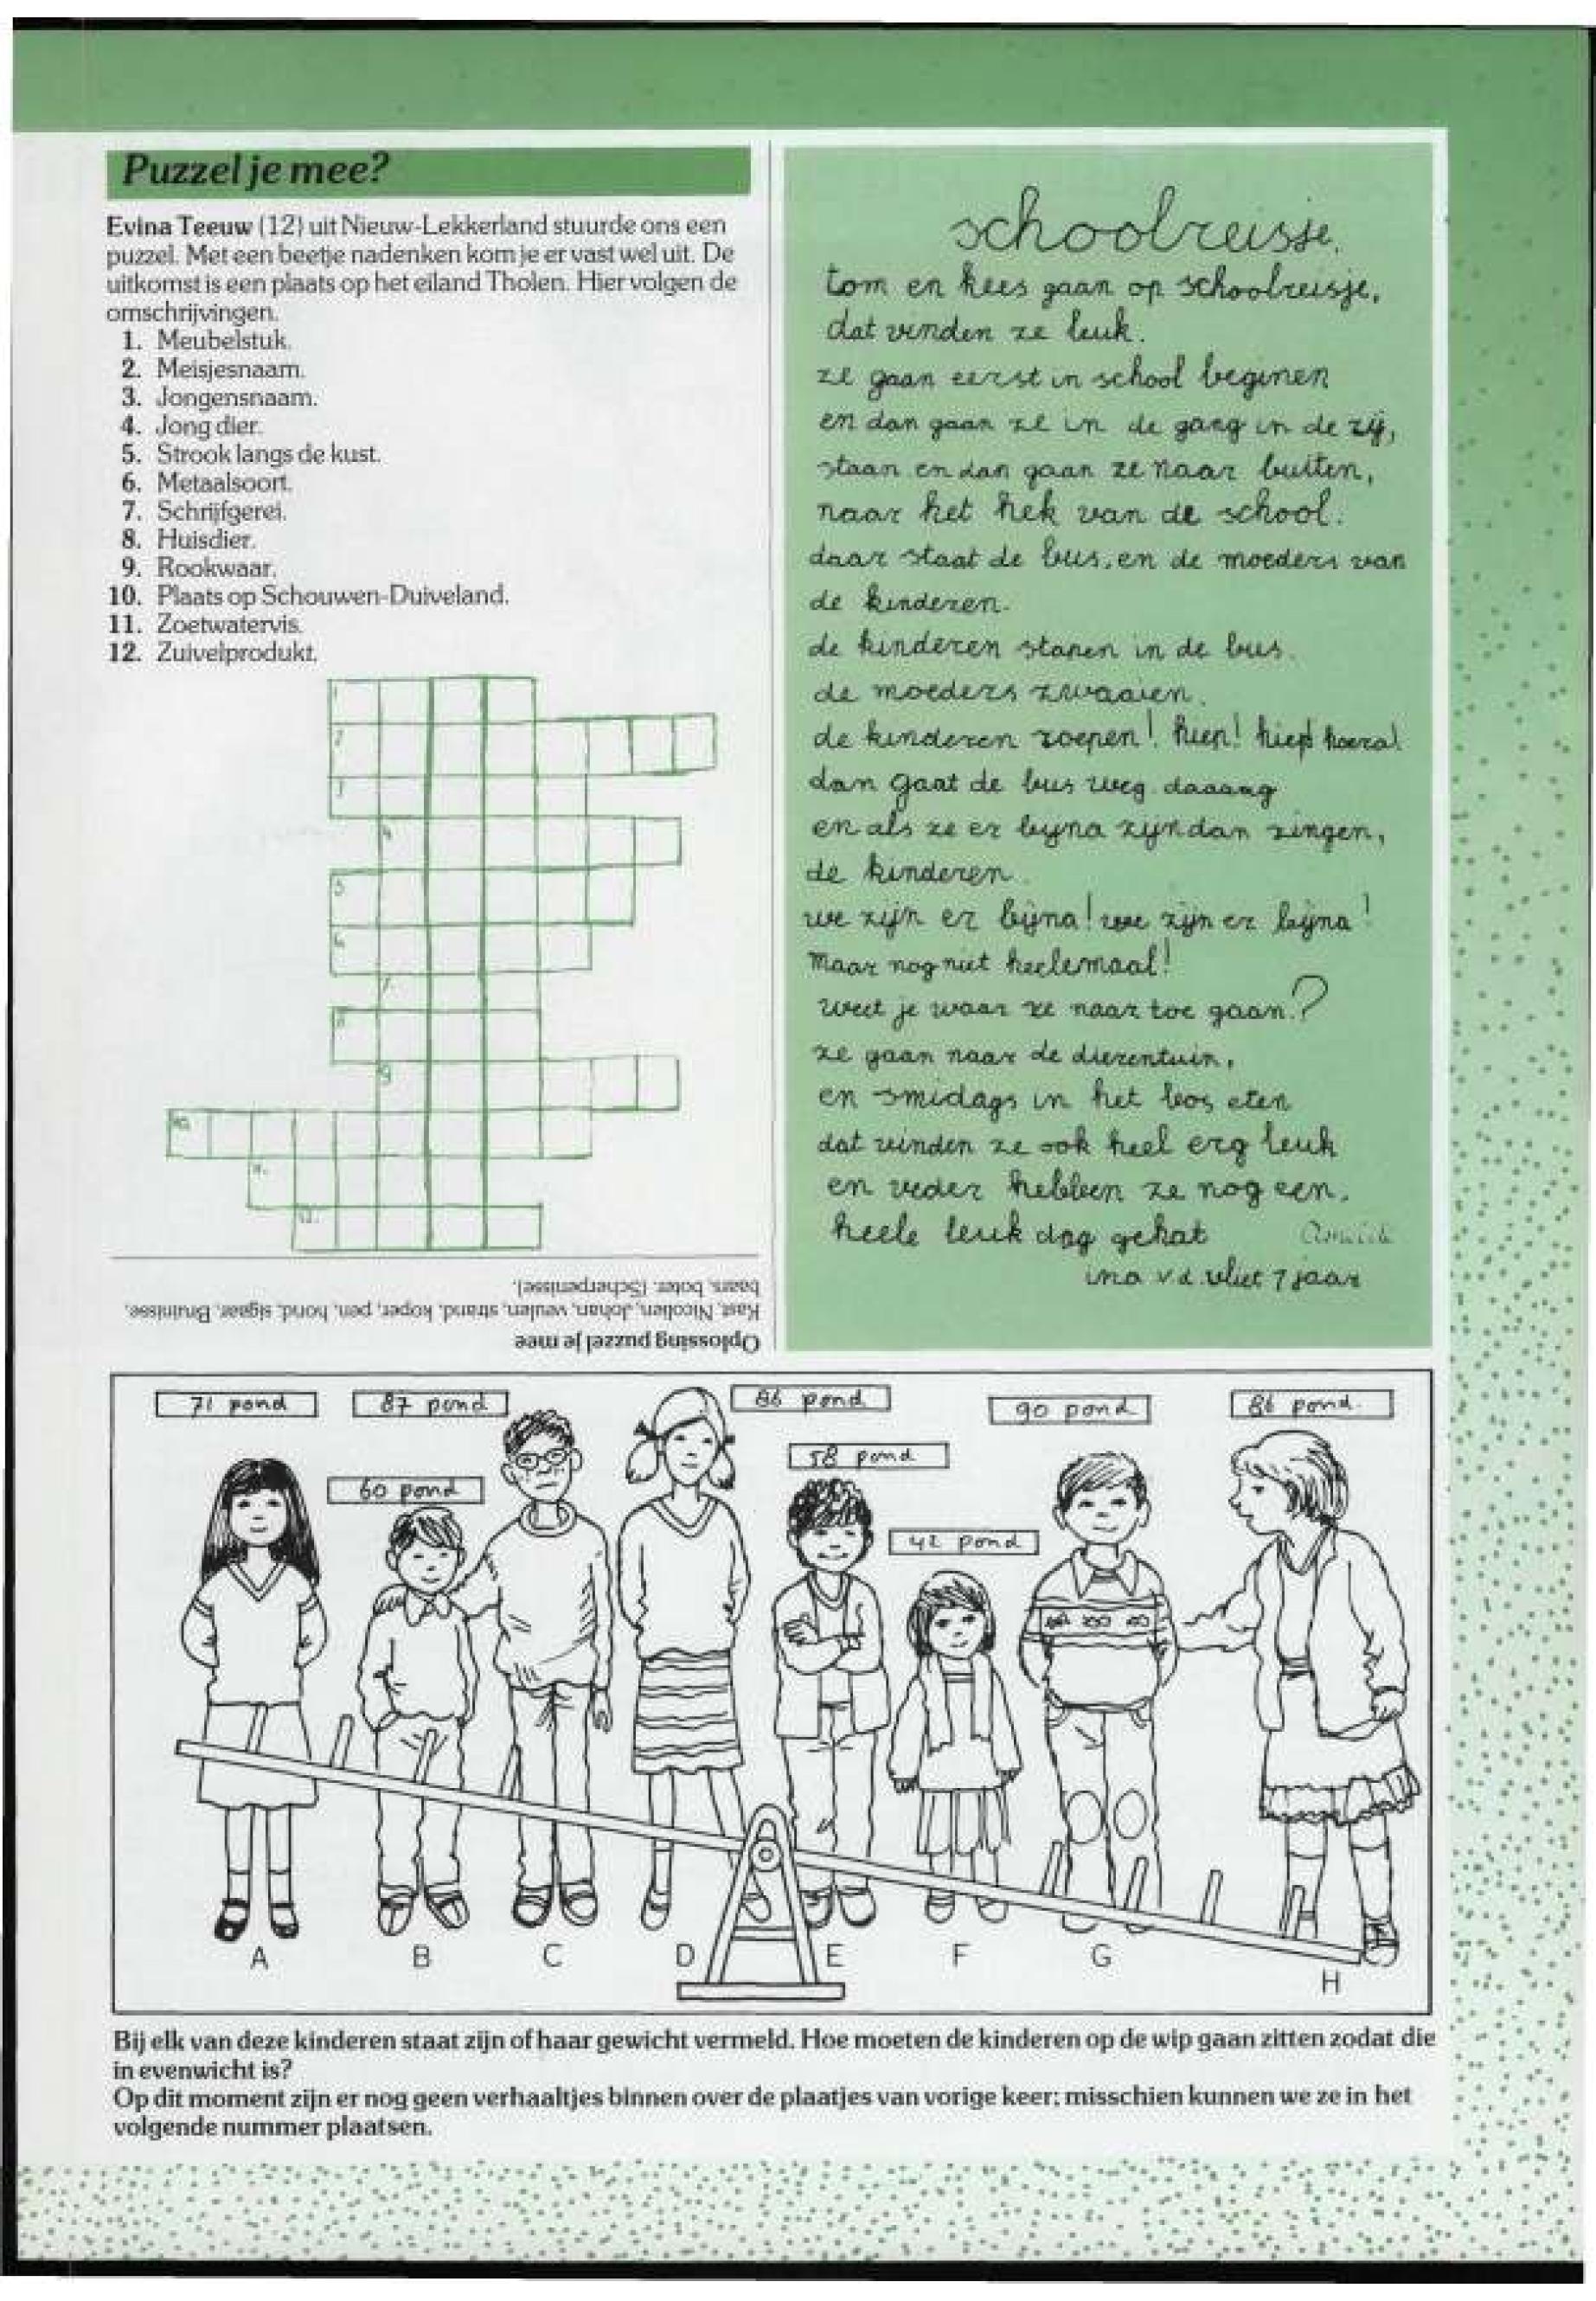 Puzzel je mee?
Evina Teeuw (12) uit Nieuw-Lekkerland stuurde ons een
puzzel. Met een beetje nadenken kom je er vast wel uit. De
uitkomst is een plaats op het eiland Tholen. Hier volgen de
omschrijvingen.
1. Meubelstuk.
2. Meisjesnaam.
3. Jongensnaam.
4. Jong dier.
5. Strook langs de kust.
6. Metaalsoort.
7. Schrijfgerei.
8. Huisdier.
9. Rookwaar.
10. Plaats op Schouwen-Duiveland.
11. Zoetwatervis.
12. Zuivelprodukt.
1
2
3
4
5
6
7
8
9
10
11.
12.
Oplossing puzzel je mee
Kast, Nicolien, Johan, veulen, strand, koper, pen, hond, sigaar, Bruinisse,
baars, boter. (Scherpenisse).
schoolreisje.
tom en kees gaan op schoolreisje,
dat vinden ze leuk.
ze gaan eerst in school beginen
en dan gaan ze in de gang in de rij,
staan en dan gaan ze naar buiten,
naar het hek van de school.
daar staat de bus, en de moeders van
de kinderen.
de kinderen stapen in de bus.
de moeders zwaaien.
de kinderen roepen! hiep! hiep! hoera!
dan gaat de bus weg. daaang
en als ze er bijna zijn dan zingen,
de kinderen.
we zijn er bijna! we zijn er bijna!
Maar nog niet heelemaal!
weet je waar ze naar toe gaan?
ze gaan naar de dierentuin,
en smidags in het bos eten
dat vinden ze ook heel erg leuk
en veder hebben ze nog een,
heele leuk dag gehat
ina v.d. vliet 7 jaar
71 pond
87 pond
86 pond
90 pond
86 pond.
60 pond
58 pond
42 pond
A B C D E F G H
Bij elk van deze kinderen staat zijn of haar gewicht vermeld. Hoe moeten de kinderen op de wip gaan zitten zodat die
in evenwicht is?
Op dit moment zijn er nog geen verhaaltjes binnen over de plaatjes van vorige keer; misschien kunnen we ze in het
volgende nummer plaatsen.